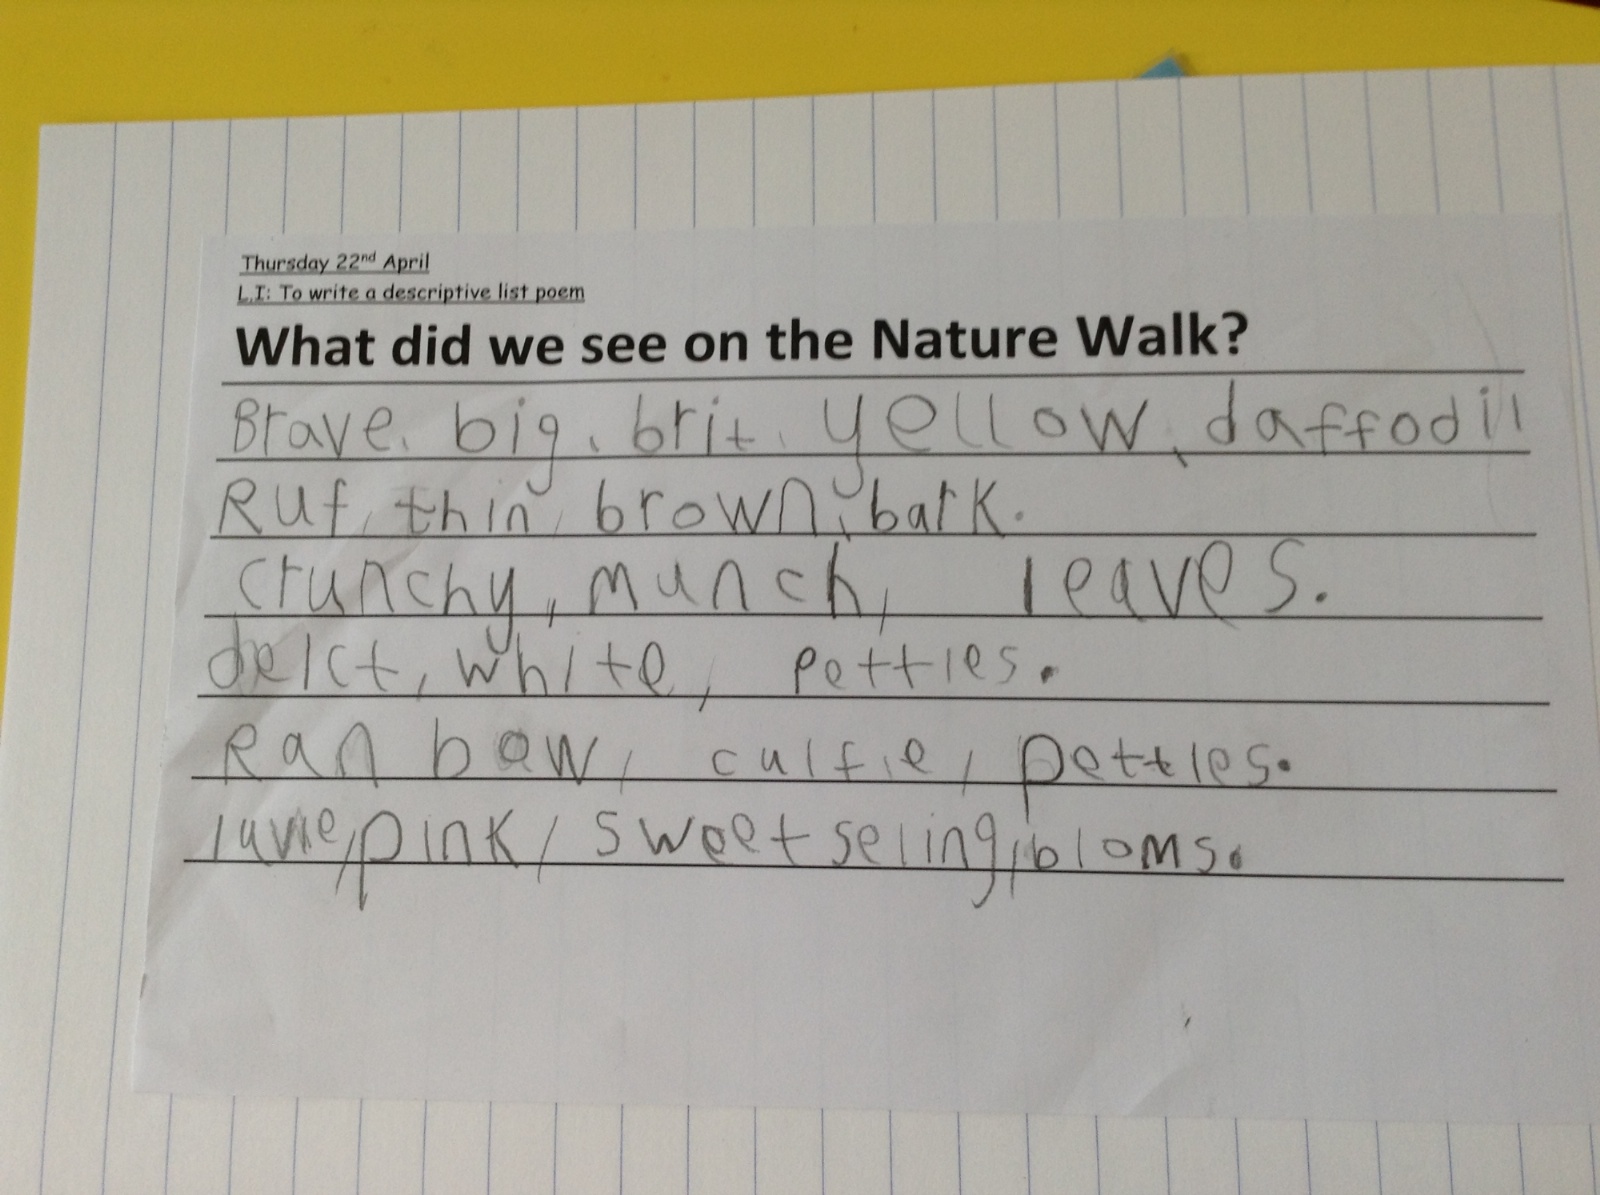 Thursday 22nd April
L.I: To write a descriptive list poem
What did we see on the Nature Walk?
Brave, big, brit, yellow, daffodil
Ruf, thin, brown, bark.
crunchy, munch, leaves.
delct, white, pettles.
Ran bow, culfie, pettles.
luvie, pink, sweet seling, bloms.